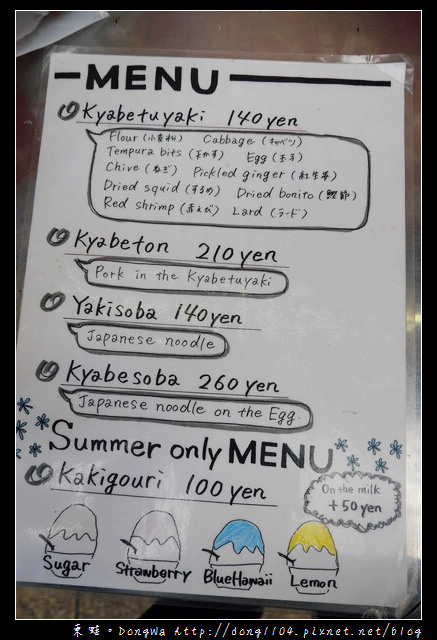 MENU
Kyabetuyaki 140yen
Flour (小麦粉) Cabbage (キャベツ)
Tempura bits (天かす) Egg (玉子)
Chive (ねぎ) Pickled ginger (紅生姜)
Dried squid (するめ) Dried bonito (鰹節)
Red shrimp (赤えび) Lard (ラード)
Kyabeton 210yen
Pork in the Kyabetuyaki
Yakisoba 140yen
Japanese noodle
Kyabesoba 260yen
Japanese noodle on the Egg.
Summer only MENU
Kakigouri 100yen
On the milk
+50yen
Sugar Strawberry BlueHawaii Lemon
東蛙。DongWa http://dong1104.pixnet.net/blog